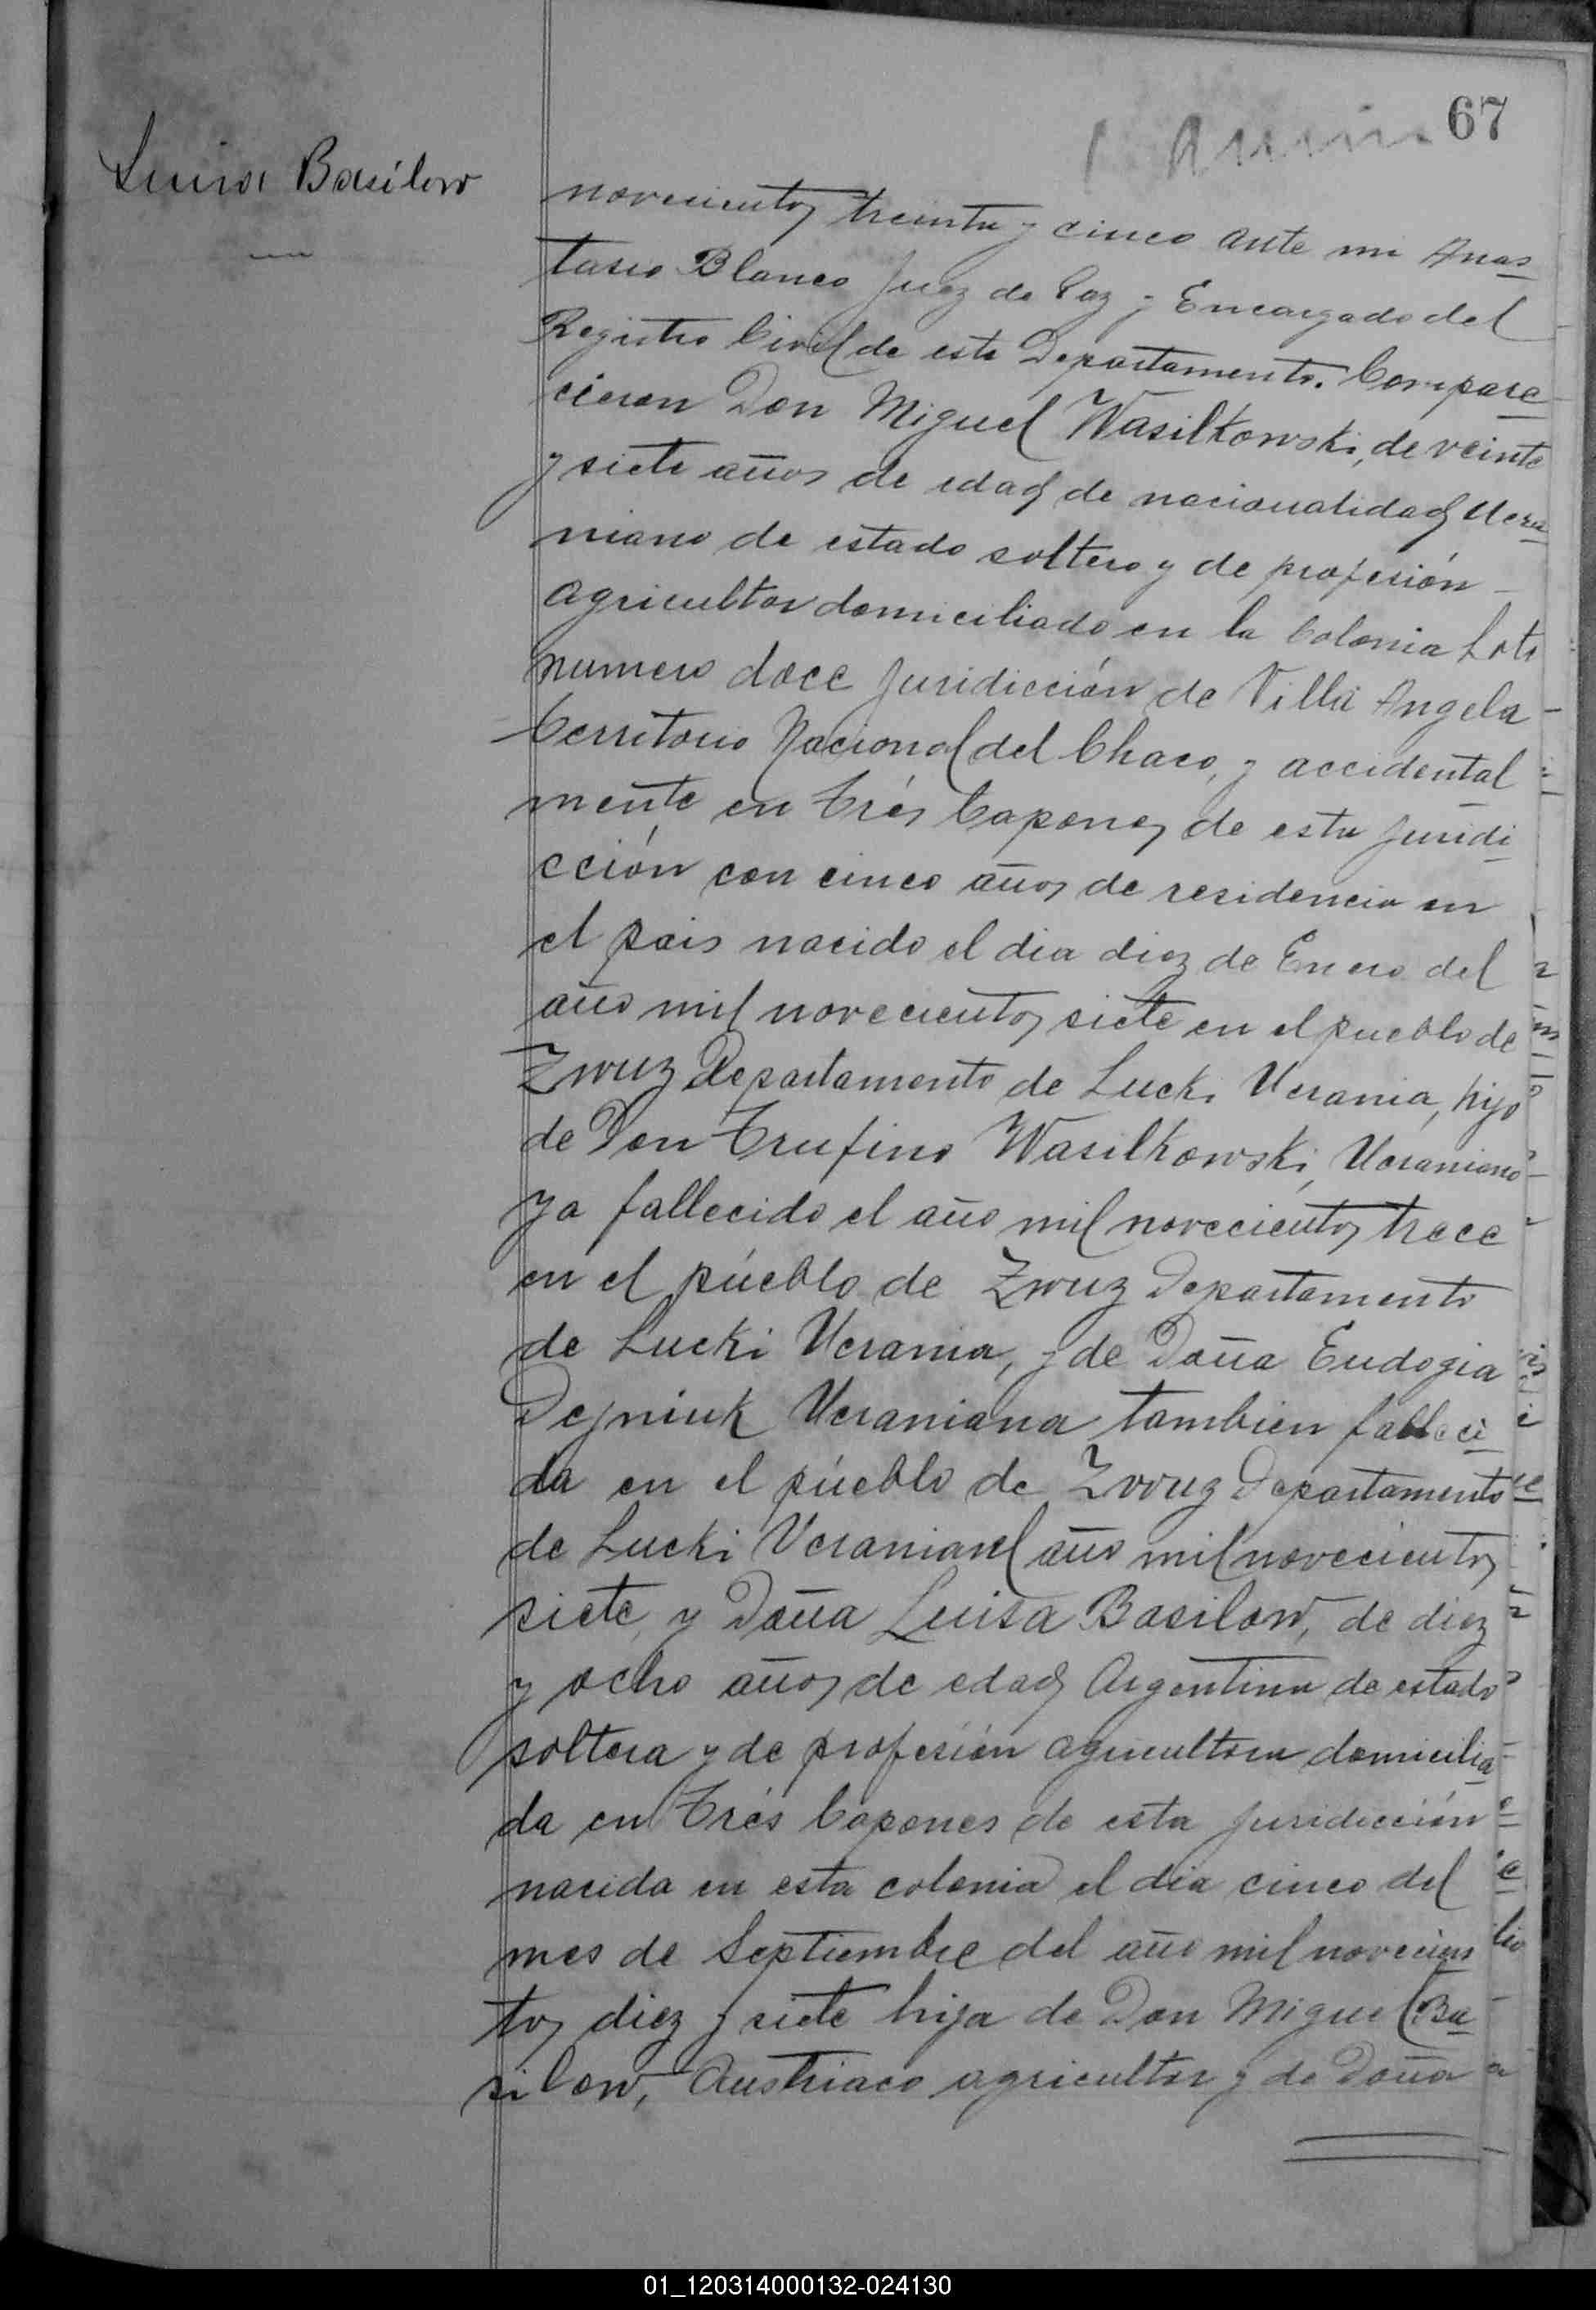 67
Luisa Basilow
novecientos treinta y cinco ante mi Anas
tasio Blanco Juez de Paz y Encargado del
Registro Civil de este Departamento. Compare
cieron Don Miguel Wasilkowski, de veinte
y siete años de edad de nacionalidad Ucra
niano de estado soltero y de profesión
agricultor domiciliado en la Colonia Lote
numero doce Juridicción de Villa Angela
Territorio Nacional del Chaco, y accidental
mente en Trés Capones de esta juridi
cción con cinco años de residencia en
el pais nacido el dia diez de Enero del
año mil novecientos siete en el pueblo de
Zwuz Departamento de Lucki Ucrania, hijo
de Don Trufino Wasilkowski, Ucraniano
ya fallecido el año mil novecientos trece
en el pueblo de Zwuz Departamento
de Lucki Ucrania, y de Doña Eudogia
Dejniuk Ucraniana tambien falleci
da en el pueblo de Zwuz Departamento
de Lucki Ucrania el año mil novecientos
siete, y Doña Luisa Basilow, de diez
y ocho años de edad Argentina de estado
soltera y de profesión agricultora domicilia
da en Trés Capones de esta juridicción
nacida en esta colonia el dia cinco del
mes de Septiembre del año mil novecien
tos diez y siete hija de Don Miguel Ba
silow, Austriaco agricultor y de Doña
01_120314000132-024130